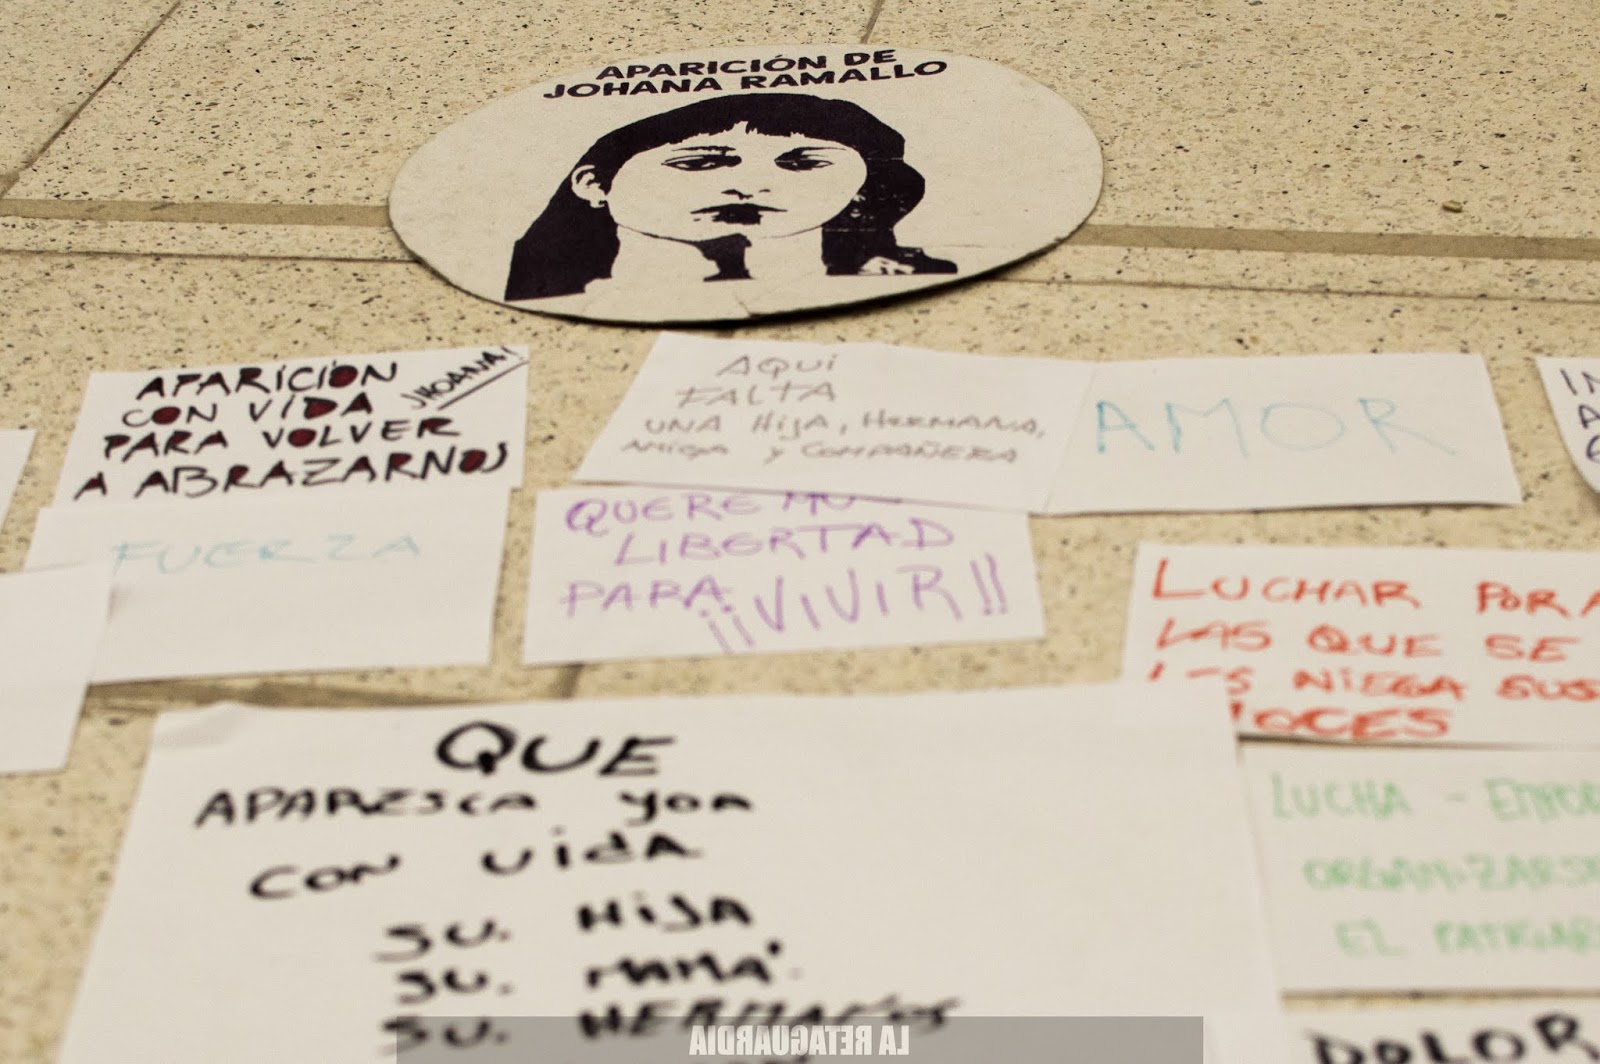 APARICIÓN DE
JOHANA RAMALLO
APARICIÓN
CON VIDA
PARA VOLVER
A ABRAZARNOS
JHOANA!
AQUi
FALTA
UNA HijA, HERMANA,
AMIGA y COMPAÑERA
AMOR
FUERZA
QUEREMO
LIBERTAD
PARA
¡¡VIVIR!!
LUCHAR POR A
LAS QUE SE
LES NIEGA SUS
VOCES
LUCHA -
ORGANIZARSE
EL PATRIAR
QUE
APARESCA yoa
CON vidA
SU. HiJA
SU. MAMÁ.
SU. HERMANOS
DOLOR
LA RETAGUARDIA